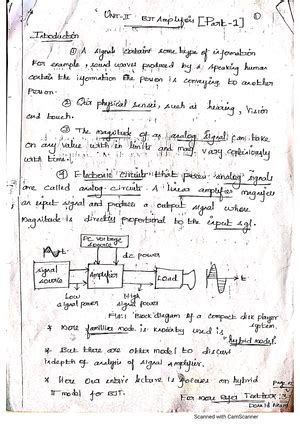 UNIT-II BJT Amplifiers [Part-1] ①
Introduction
① A signal contains some type of information
For example, sound waves produced by a speaking human
contain the information the person is conveying to another
person.
② Our physical senses, such as hearing, vision
and touch.
③ The magnitude of an analog signal can take
on any value with in limits and may vary continously
with time.
④ Electronic circuits that process analog signals
are called analog circuits. A linear amplifier magnifies
an input signal and produce a output signal whose
magnitude is directly proportional to the input sgl.
DC voltage
source
dc power
signal
source
Amplifier
Load
t
Low
signal power
High
signal power
Fig: Block diagram of a compact disk player
system.
* More familliar model is knowing used is
"hybrid model".
* But there are other model to discuss
indepth of analysis of signal amplifier.
* Here our entire lecture is focuses on hybrid
π model for BJT.
For more Refer Textbook :3
Scanned with CamScanner